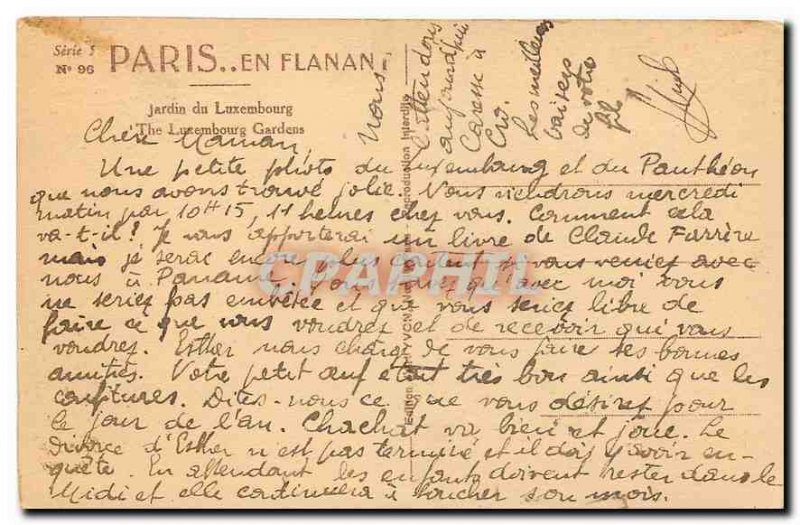 Série 5
N° 96
PARIS.. EN FLANANT
Jardin du Luxembourg
The Luxembourg Gardens
Reproduction Interdite
Edition YVON
CPAPHIL
Chère Maman,
Une petite photo du Luxembourg et du Panthéon
que nous avons trouvé jolie. Nous viendrons mercredi
matin par 10H15, 11 heures chez vous. Comment cela
va-t-il? Je vous apporterai un livre de Claude Farrère
mais je serai encore plus content si vous veniez avec
nous à Paname. Vous savez qu'avec moi vous
ne seriez pas embêtée et que vous seriez libre de
faire ce que vous voudrez et de recevoir qui vous
voudrez. Esther nous charge de vous faire ses bonnes
amitiés. Votre petit œuf était très bon ainsi que les
confitures. Dites-nous ce que vous désirez pour
le jour de l'an. Chachat va bien et joue. Le
divorce d'Esther n'est pas terminé et il doit y avoir en-
quête. En attendant les enfants doivent rester dans le
Midi et elle continuera à toucher son mois.
Nous
attendons
aujourd'hui
à
Les meilleurs
baisers
de votre
fils